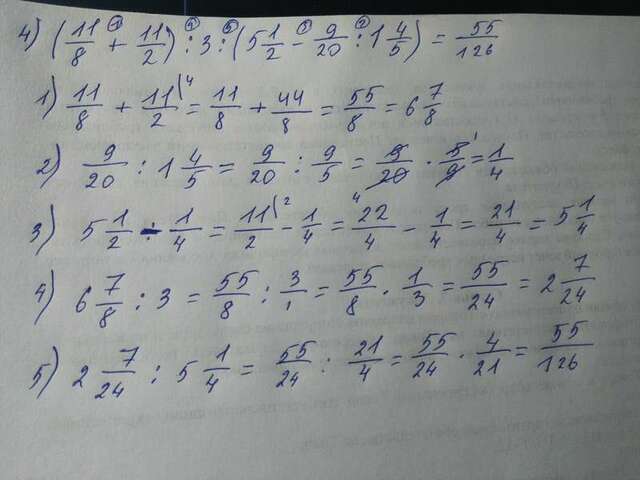 4) (11/8 + 11/2) : 3 : (5 1/2 − 9/20 : 1 4/5) = 55/126
1) 11/8 + 11/2 (4 = 11/8 + 44/8 = 55/8 = 6 7/8
2) 9/20 : 1 4/5 = 9/20 : 9/5 = 9/20 · 5/9 = 1/4
3) 5 1/2 - 1/4 = 11/2 (2 − 1/4 = 22/4 − 1/4 = 21/4 = 5 1/4
4) 6 7/8 : 3 = 55/8 : 3/1 = 55/8 · 1/3 = 55/24 = 2 7/24
5) 2 7/24 : 5 1/4 = 55/24 : 21/4 = 55/24 · 4/21 = 55/126